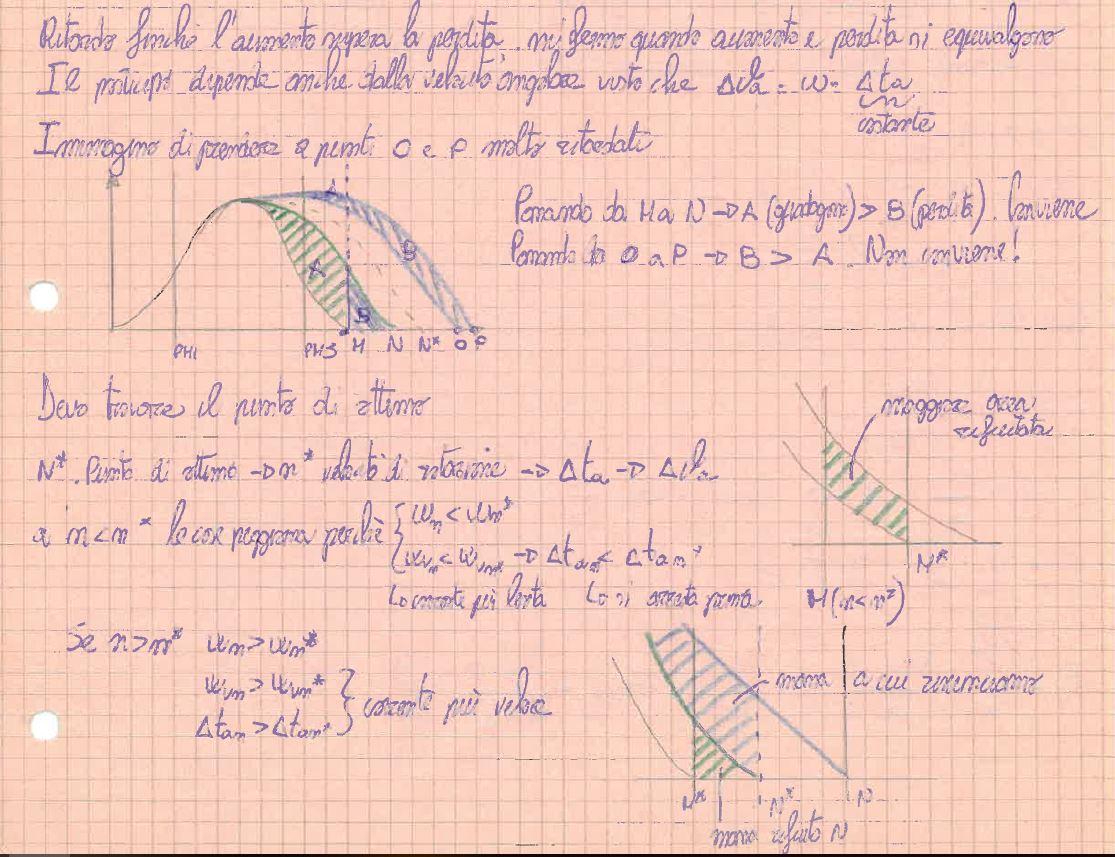 Ritardo finchè l'aumento supera la perdita, mi fermo quando aumento e perdita si equivalgono
Il dipende anche dalla velocità angolare visto che Δϑa = ω · Δta
costante
Immagino di prendere 2 punti O e P molto ritardati
Passando da M a N → A (guadagno) > B (perdita). Conviene
Passando da O a P → B > A. Non conviene!
A
B
A
B
PM1 PM3 M N N* O P
Devo trovare il punto di ottimo
maggior area
rifiutata
N*: Punto di ottimo → n* velocità di rotazione → Δta → Δϑa
a n < n* le cose peggiora perchè { ωn < ωn*
ωvn < ωvn* → Δtan < Δtan*
N*
corrente più lenta si arresta prima
M (n < n*)
Se n > n* ωn > ωn*
ωvn > ωvn*
Δtan > Δtan* } corrente più veloce
massa a cui rinunciamo
M* N* N
massa rifiuto N